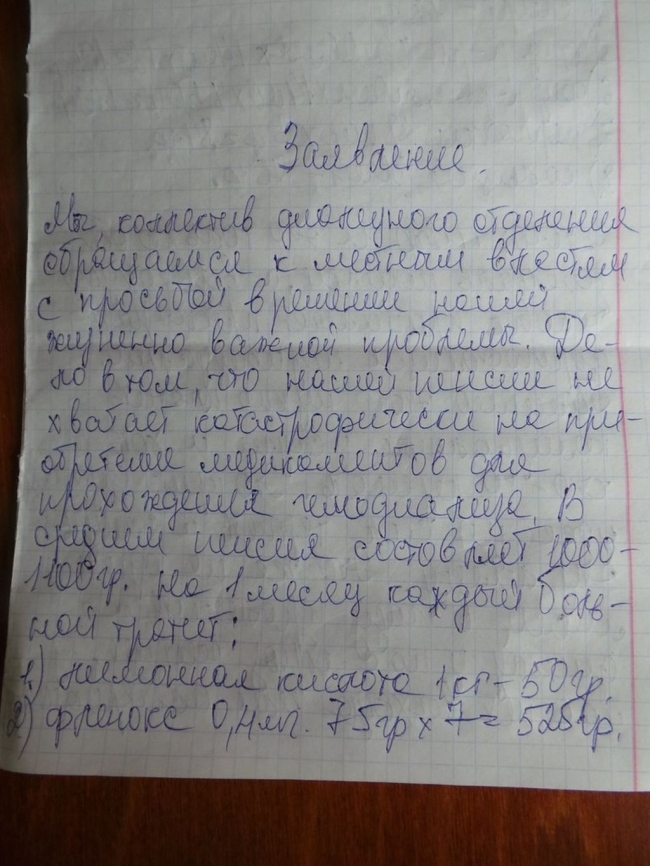 Заявление.
Мы, коллектив диализного отделения
обращаемся к местным властям
с просьбой в решении нашей
жизненно важной проблемы. Де-
ло в том, что нашей пенсии не
хватает катастрофически на при-
обретение медикаментов для
прохождения гемодиализа. В
среднем пенсия составляет 1000-
1100гр. на 1 месяц каждый боль-
ной тратит:
1.) лимонная кислота 1кг - 50гр.
2) фленокс 0,4мг. 75гр х 7 = 525гр.